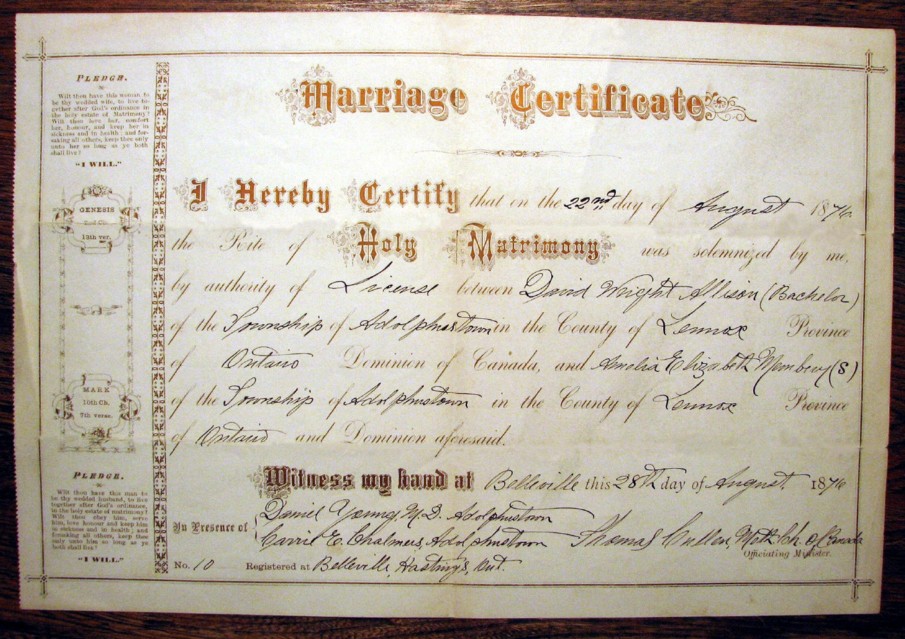 PLEDGE.
Wilt thou have this woman to
be thy wedded wife, to live to-
gether after God's ordinance in
the holy estate of Matrimony?
Wilt thou love her, comfort
her, honour, and keep her in
sickness and in health; and for-
saking all others, keep thee only
unto her so long as ye both
shall live?
"I WILL."
GENESIS
2nd Ch.
12th ver.
MARK
10th Ch.
7th verse.
PLEDGE.
Wilt thou have this man to
be thy wedded husband, to live
together after God's ordinance,
in the holy estate of matrimony?
Wilt thou obey him, serve
him, love honour and keep him
in sickness and in health; and
forsaking all others, keep thee
only unto him so long as ye
both shall live?
"I WILL."
Marriage Certificate
I Hereby Certify that on the 22nd day of August 1876
the Rite of Holy Matrimony was solemnized by me,
by authority of License between David Wright Allison (Bachelor)
of the Township of Adolphustown in the County of Lennox Province
of Ontario Dominion of Canada, and Amelia Elizabeth Membery (S)
of the Township of Adolphustown in the County of Lennox Province
of Ontario and Dominion aforesaid.
Witness my hand at Belleville this 28th day of August 1876
In Presence of
Daniel Young, M.D. Adolphustown
Carrie E. Chalmers, Adolphustown
Thomas Cullen, Meth Ch. of Canada
Officiating Minister.
No. 10 Registered at Belleville, Hastings, Ont.